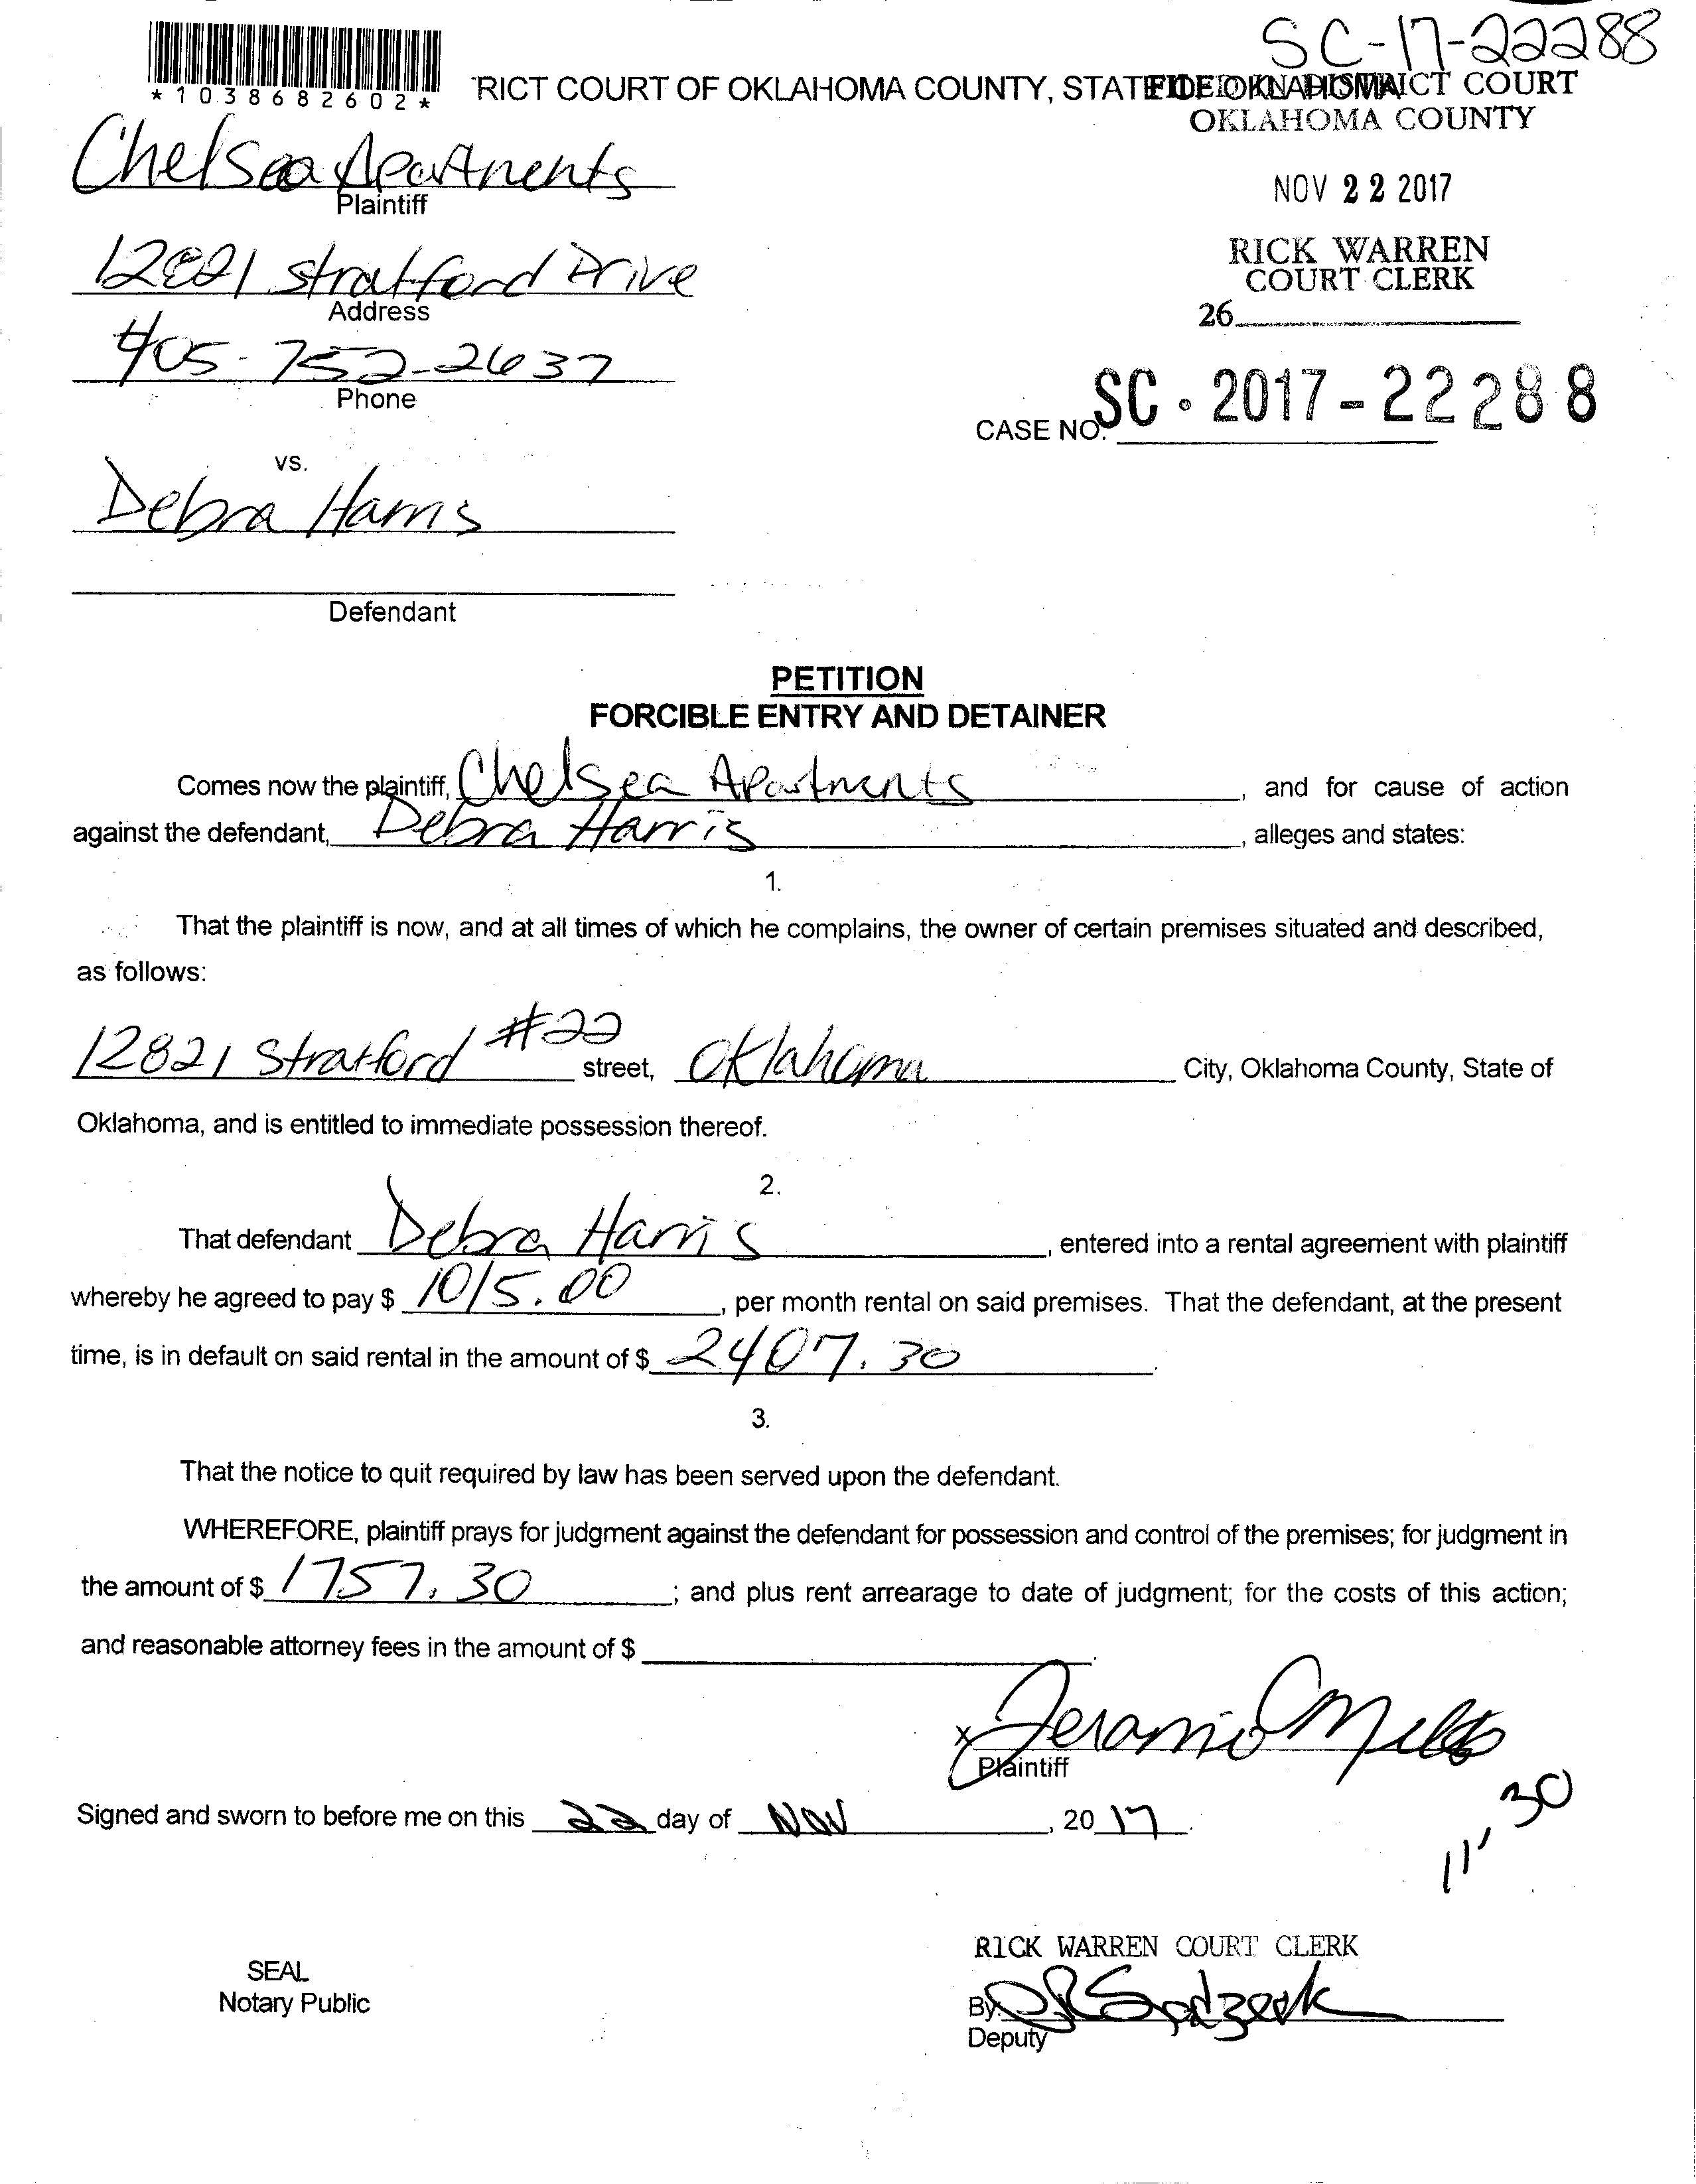 SC-17-22288
*1038682602*
RICT COURT OF OKLAHOMA COUNTY, STATE
FILED IN DISTRICT COURT
OKLAHOMA COUNTY
Chelsea Apartments
Plaintiff
NOV 22 2017
12821 Stratford Drive
Address
RICK WARREN
COURT CLERK
26
405-752-2637
Phone
CASE NO. SC-2017-22288
vs.
Debra Harris
Defendant
PETITION
FORCIBLE ENTRY AND DETAINER
Comes now the plaintiff, Chelsea Apartments, and for cause of action
against the defendant, Debra Harris, alleges and states:
1.
That the plaintiff is now, and at all times of which he complains, the owner of certain premises situated and described,
as follows:
12821 Stratford #22 street, Oklahoma City, Oklahoma County, State of
Oklahoma, and is entitled to immediate possession thereof.
2.
That defendant Debra Harris, entered into a rental agreement with plaintiff
whereby he agreed to pay $ 1015.00, per month rental on said premises. That the defendant, at the present
time, is in default on said rental in the amount of $ 2407.30.
3.
That the notice to quit required by law has been served upon the defendant.
WHEREFORE, plaintiff prays for judgment against the defendant for possession and control of the premises; for judgment in
the amount of $ 1757.30; and plus rent arrearage to date of judgment; for the costs of this action;
and reasonable attorney fees in the amount of $
x
Plaintiff
Signed and sworn to before me on this 22 day of Nov, 2017.
11,30
RICK WARREN COURT CLERK
SEAL
Notary Public
By:
Deputy